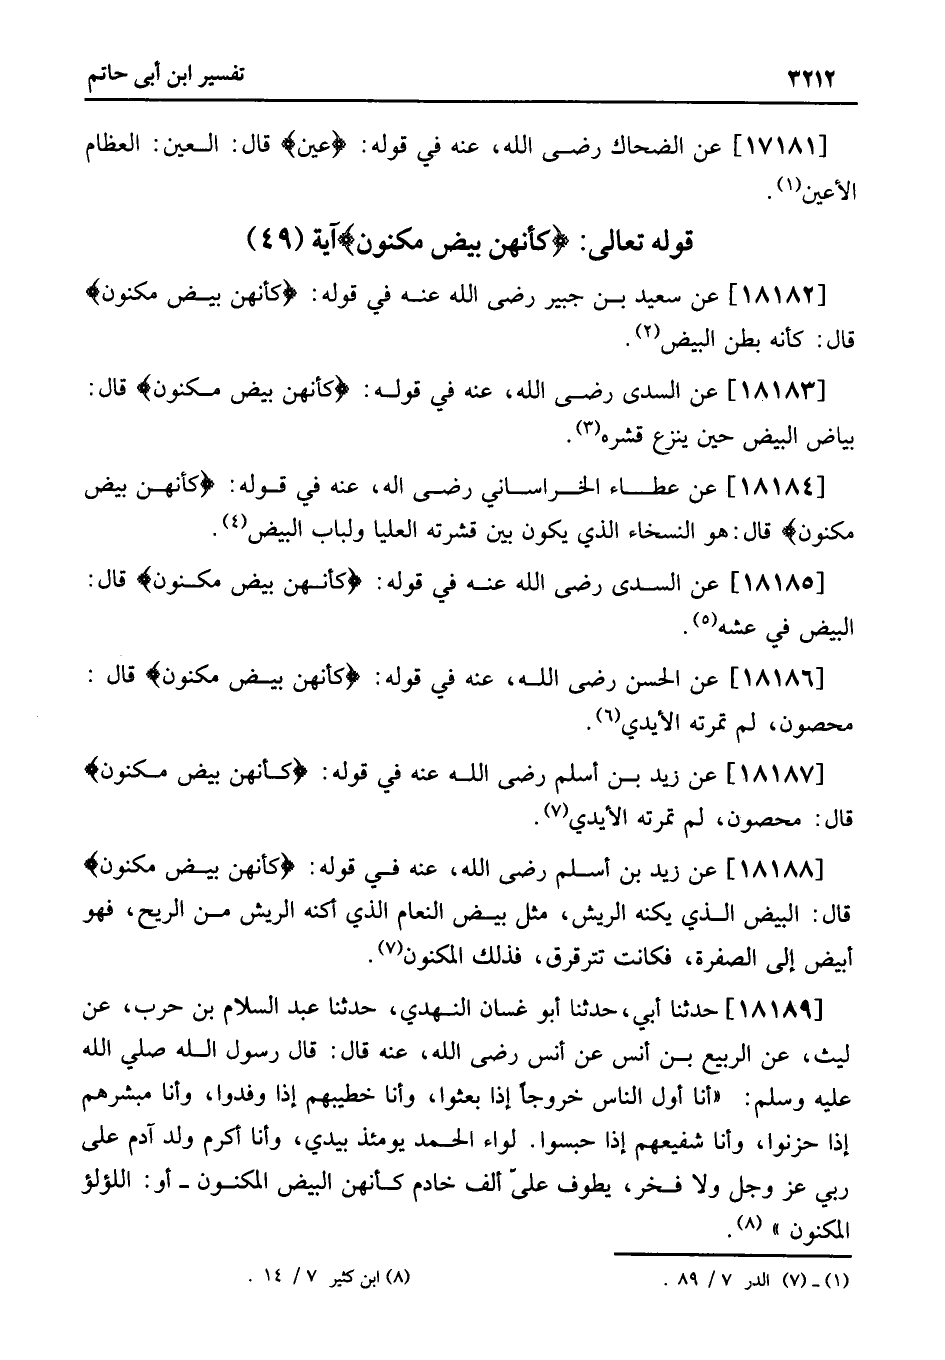 ٣٢١٢
تفسير ابن أبى حاتم
[١٧١٨١] عن الضحاك رضى الله، عنه في قوله: ﴿عين﴾ قال: العين: العظام
الأعين(١).
قوله تعالى: ﴿كأنهن بيض مكنون﴾آية (٤٩)
[١٨١٨٢] عن سعيد بن جبير رضى الله عنه في قوله: ﴿كأنهن بيض مكنون﴾
قال: كأنه بطن البيض(٢).
[١٨١٨٣] عن السدى رضى الله، عنه في قوله: ﴿كأنهن بيض مكنون﴾ قال:
بياض البيض حين ينزع قشره(٣).
[١٨١٨٤] عن عطاء الخراساني رضى اله، عنه في قوله: ﴿كأنهن بيض
مكنون﴾ قال:هو النسخاء الذي يكون بين قشرته العليا ولباب البيض(٤).
[١٨١٨٥] عن السدى رضى الله عنه في قوله: ﴿كأنهن بيض مكنون﴾ قال:
البيض في عشه(٥).
[١٨١٨٦] عن الحسن رضى الله، عنه في قوله: ﴿كأنهن بيض مكنون﴾ قال :
محصون، لم تمرته الأيدي(٦).
[١٨١٨٧] عن زيد بن أسلم رضى الله عنه في قوله: ﴿كأنهن بيض مكنون﴾
قال: محصون، لم تمرته الأيدي(٧).
[١٨١٨٨] عن زيد بن أسلم رضى الله، عنه في قوله: ﴿كأنهن بيض مكنون﴾
قال: البيض الذي يكنه الريش، مثل بيض النعام الذي أكنه الريش من الريح، فهو
أبيض إلى الصفرة، فكانت تترقرق، فذلك المكنون(٧).
[١٨١٨٩] حدثنا أبي،حدثنا أبو غسان النهدي، حدثنا عبد السلام بن حرب، عن
ليث، عن الربيع بن أنس عن أنس رضى الله، عنه قال: قال رسول الله صلي الله
عليه وسلم: «أنا أول الناس خروجاً إذا بعثوا، وأنا خطيبهم إذا وفدوا، وأنا مبشرهم
إذا حزنوا، وأنا شفيعهم إذا حبسوا. لواء الحمد يومئذ بيدي، وأنا أكرم ولد آدم على
ربي عز وجل ولا فخر، يطوف علىّ ألف خادم كأنهن البيض المكنون - أو: اللؤلؤ
المكنون » (٨).
(١) - (٧) الدر ٧ / ٨٩ .
(٨) ابن كثير ٧ / ١٤ .